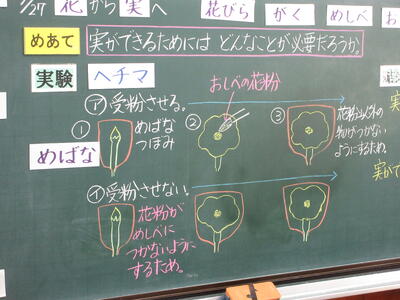 7/27 花から実へ
花びら がく めしべ お
めあて 実ができるためには どんなことが必要だろうか。
実験 ヘチマ
おしべの花粉
㋐受粉させる。
① めばな
つぼみ
②
③ 花粉以外の
物がつかない
ようにするため。
めばな
㋑受粉させない。
花粉が
めしべに
つかないように
するため。
実が